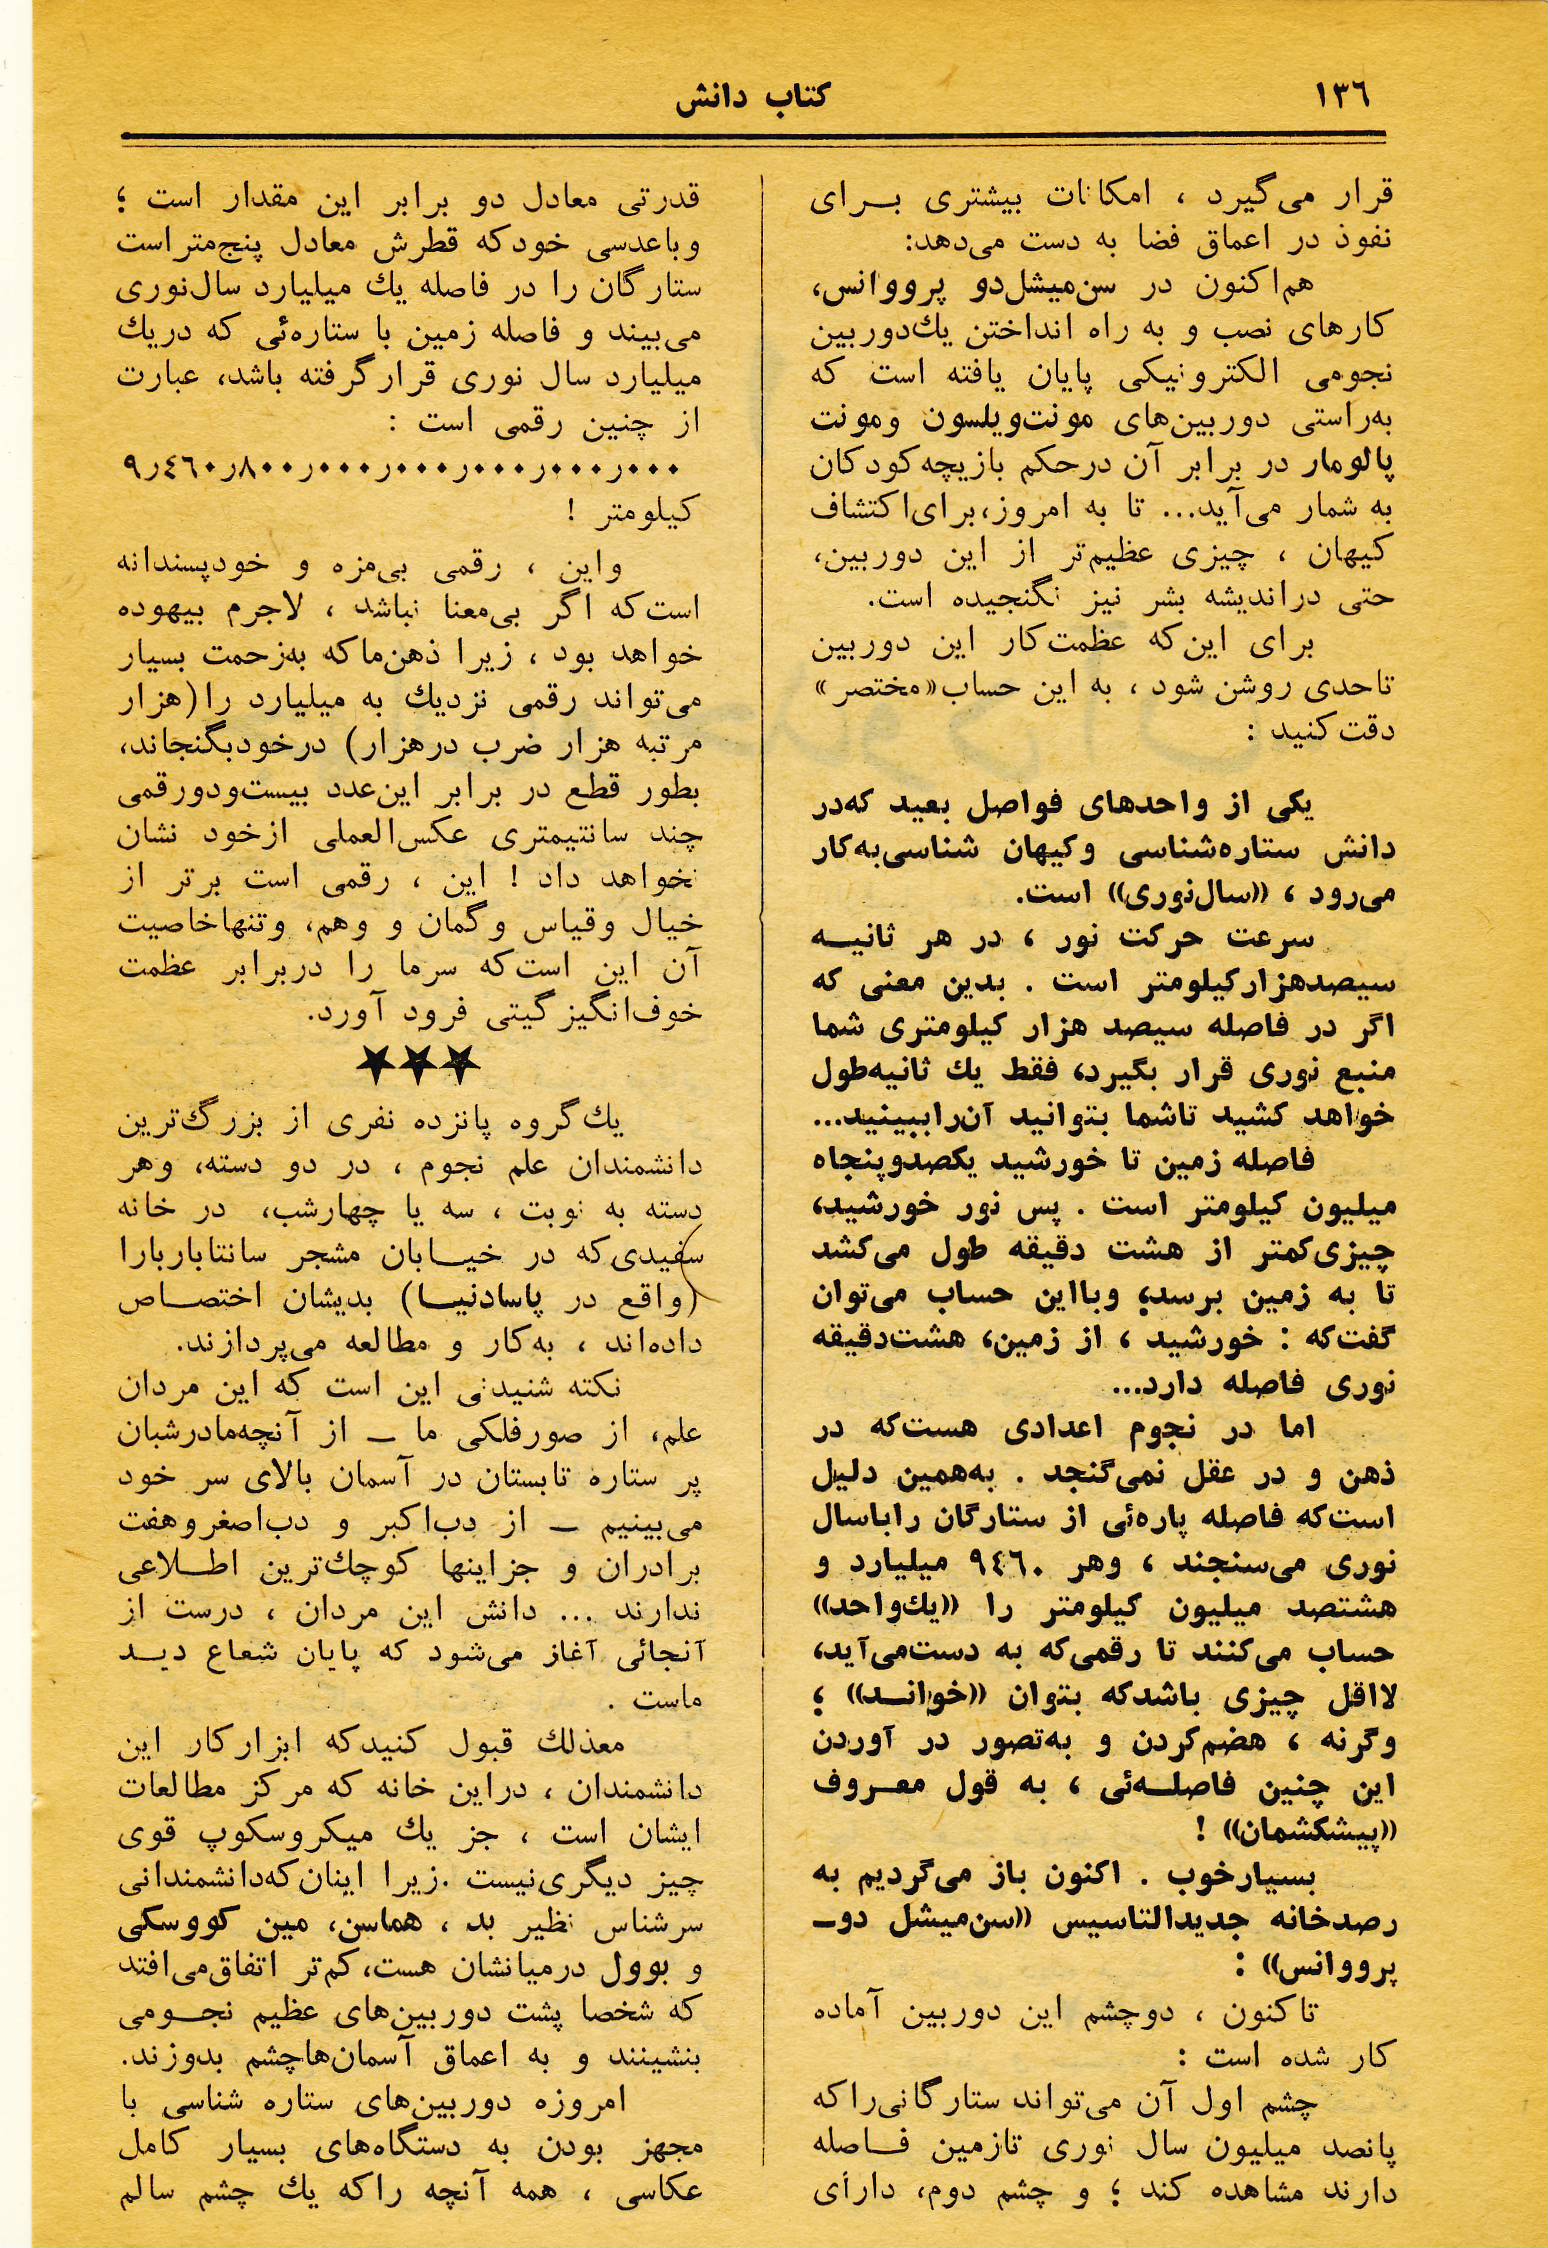 ۱۳٦
کتاب دانش
قرار می‌گیرد ، امکانات بیشتری بـرای
نفوذ در اعماق فضا به دست می‌دهد:
هم‌اکنون در سن‌میشل‌دو پرووانس،
کارهای نصب و به راه انداختن یك‌دوربین
نجومی الکترونیکی پایان یافته است که
به‌راستی دوربین‌های مونت‌ویلسون ومونت
پالومار در برابر آن درحکم بازیچه‌کودکان
به شمار می‌آید... تا به امروز،برای‌اکتشاف
کیهان ، چیزی عظیم‌تر از این دوربین،
حتی دراندیشه بشر نیز نگنجیده است.
برای این‌که عظمت‌کار این دوربین
تاحدی روشن شود ، به این حساب«مختصر»
دقت‌کنید :
یکی از واحدهای فواصل بعید که‌در
دانش ستاره‌شناسی وکیهان شناسی‌به‌کار
می‌رود ، ((سال‌نوری)) است.
سرعت حرکت نور ، در هر ثانیـه
سیصدهزارکیلومتر است . بدین معنی که
اگر در فاصله سیصد هزار کیلومتری شما
منبع نوری قرار بگیرد، فقط یك ثانیه‌طول
خواهد کشید تاشما بتوانید آن‌راببینید...
فاصله زمین تا خورشید یکصدوپنجاه
میلیون کیلومتر است . پس نور خورشید،
چیزی‌کمتر از هشت دقیقه طول می‌کشد
تا به زمین برسد؛ وبااین حساب می‌توان
گفت‌که : خورشید ، از زمین، هشت‌دقیقه
نوری فاصله دارد...
اما در نجوم اعدادی هست‌که در
ذهن و در عقل نمی‌گنجد . به‌همین دلیل
است‌که فاصله پاره‌ئی از ستارگان راباسال
نوری می‌سنجند ، وهر ۹٤٦۰ میلیارد و
هشتصد میلیون کیلومتر را ((یك‌واحد))
حساب می‌کنند تا رقمی‌که به دست‌می‌آید،
لااقل چیزی باشدکه بتوان ((خوانـد)) ؛
وگرنه ، هضم‌کردن و به‌تصور در آوردن
این چنین فاصلـه‌ئی ، به قول معـروف
((پیشکشمان)) !
بسیارخوب . اکنون باز می‌گردیم به
رصدخانه جدیدالتاسیس ((سن‌میشل دو-
پرووانس)) :
تاکنون ، دوچشم این دوربین آماده
کار شده است :
چشم اول آن می‌تواند ستارگانی‌راکه
پانصد میلیون سال نوری تازمین فـاصله
دارند مشاهده کند ؛ و چشم دوم، دارای
قدرتی معادل دو برابر این مقدار است ؛
وباعدسی خودکه قطرش معادل پنج‌متراست
ستارگان را در فاصله یك میلیارد سال‌نوری
می‌بیند و فاصله زمین با ستاره‌ئی که دریك
میلیارد سال نوری قرارگرفته باشد، عبارت
از چنین رقمی است :
۹ر٤٦۰ر۸۰۰ر۰۰۰ر۰۰۰ر۰۰۰ر۰۰۰ر۰۰۰
کیلومتر !
واین ، رقمی بی‌مزه و خودپسندانه
است‌که اگر بی‌معنا نباشد ، لاجرم بیهوده
خواهد بود ، زیرا ذهن‌ماکه به‌زحمت بسیار
می‌تواند رقمی نزدیك به میلیارد را(هزار
مرتبه هزار ضرب درهزار) درخودبگنجاند،
بطور قطع در برابر این‌عدد بیست‌ودورقمی
چند سانتیمتری عکس‌العملی ازخود نشان
نخواهد داد ! این ، رقمی است برتر از
خیال وقیاس وگمان و وهم، وتنهاخاصیت
آن این است‌که سرما را دربرابر عظمت
خوف‌انگیزگیتی فرود آورد.
★★★
یك‌گروه پانزده نفری از بزرگ‌ترین
دانشمندان علم نجوم ، در دو دسته، وهر
دسته به نوبت ، سه یا چهارشب، در خانه
سفیدی‌که در خیـابان مشجر سانتاباربارا
(واقع در پاسادنیـا) بدیشان اختصـاص
داده‌اند ، به‌کار و مطالعه می‌پردازند.
نکته شنیدنی این است که این مردان
علم، از صورفلکی ما ــ از آنچه‌مادرشبان
پر ستاره تابستان در آسمان بالای سر خود
می‌بینیم ــ از دب‌اکبر و دب‌اصغروهفت
برادران و جزاینها کوچك‌ترین اطـلاعی
ندارند ... دانش این مردان ، درست از
آنجائی آغاز می‌شود که پایان شعاع دیـد
ماست .
معذلك قبول کنیدکه ابزارکار این
دانشمندان ، دراین خانه که مرکز مطالعات
ایشان است ، جز یك میکروسکوپ قوی
چیز دیگری‌نیست .زیرا اینان‌که‌دانشمندانی
سرشناس نظیر بد ، هماسن، مین کووسکی
و بوول درمیانشان هست،کم‌تر اتفاق‌می‌افتد
که شخصا پشت دوربین‌های عظیم نجـومی
بنشینند و به اعماق آسمان‌هاچشم بدوزند.
امروزه دوربین‌های ستاره شناسی با
مجهز بودن به دستگاه‌های بسیار کامل
عکاسی ، همه آنچه راکه یك چشم سالم